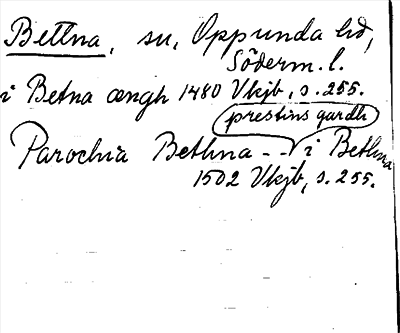 Bettna, sn, Oppunda hd,
Söderm. l.
i Betna ængh 1480 Vkjb, s. 255.
prestins gardh
Parochia Bethna -- i Bethna
1502 Vkjb, s. 255.